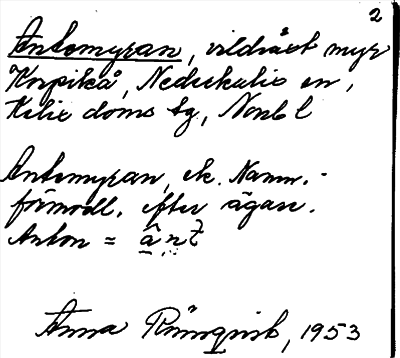 2
Antomyran, vildväxt myr
Korpikå, Nederkalix sn,
Kalix doms tg, Norrb l
Antomyran, ek. Namn.-
förmodl. efter ägare.
Anton =
Anna Rönnqvist, 1953